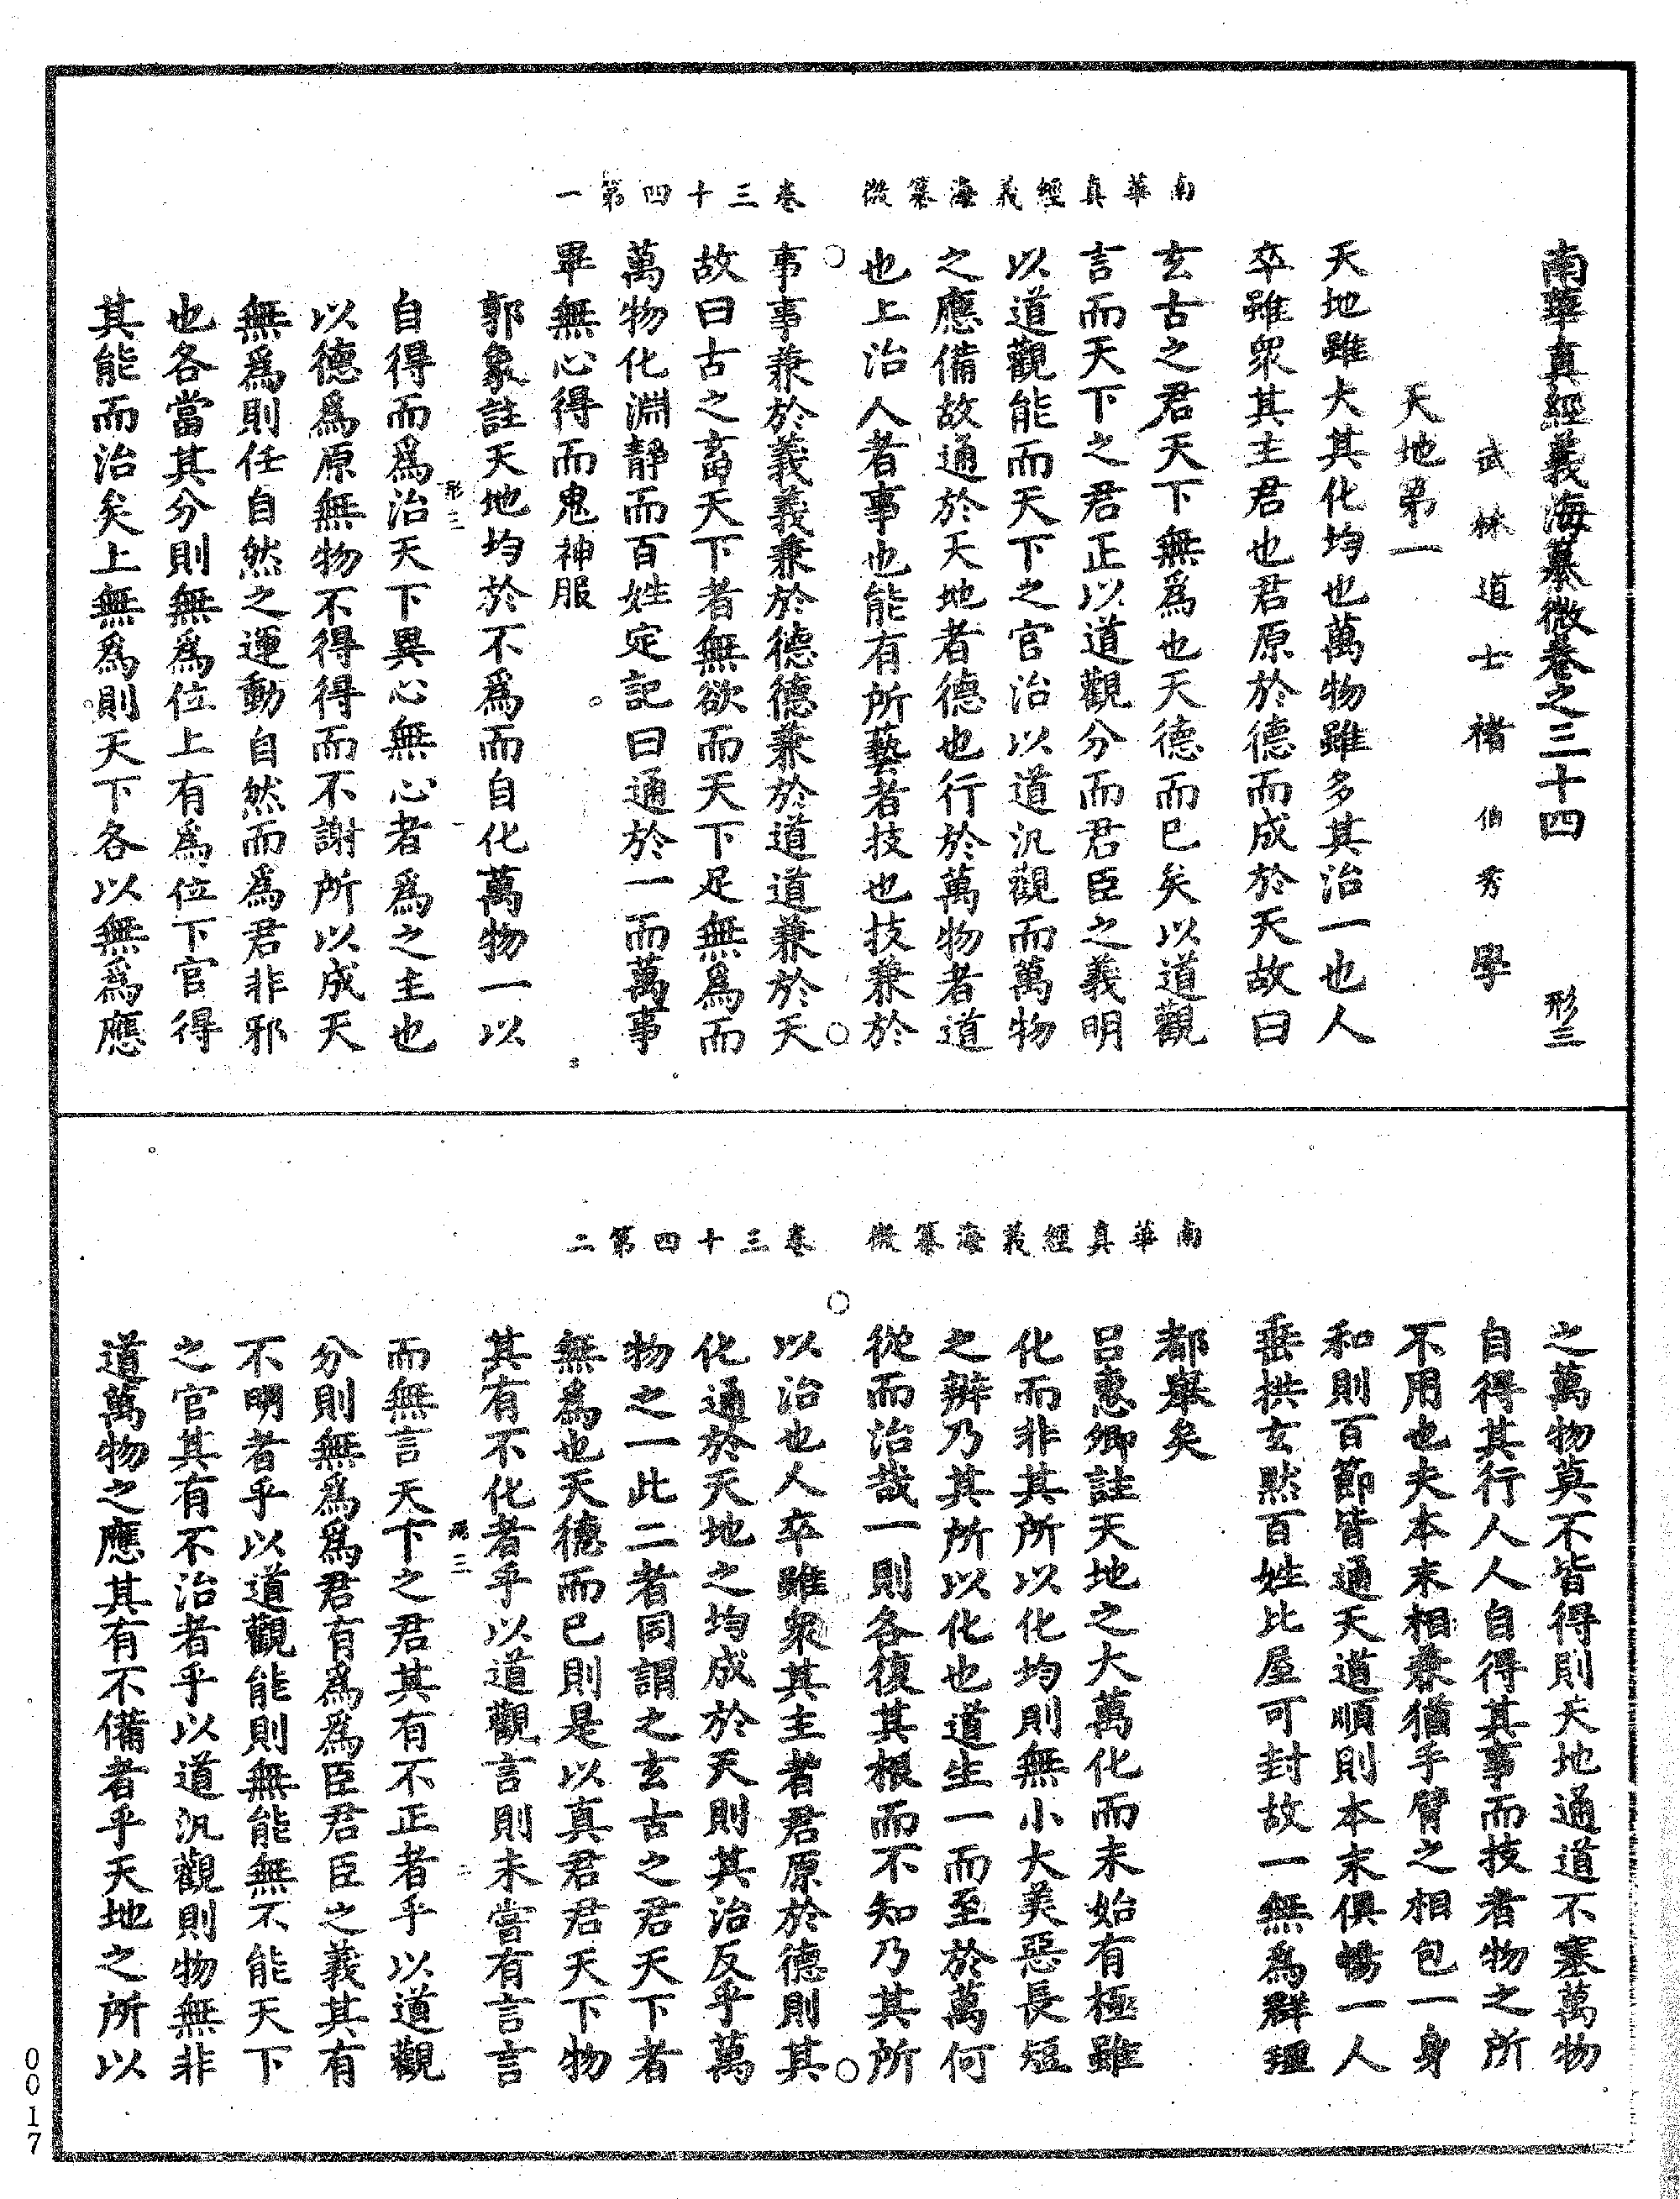 南華真經義海纂微　卷三十四第一
南華真經義海纂微卷之三十四　形三
武林道士褚伯秀學
天地第一
天地雖大其化均也萬物雖多其治一也人
卒雖眾其主君也君原於德而成於天故曰
玄古之君天下無爲也天德而已矣以道觀
言而天下之君正以道觀分而君臣之義明
以道觀能而天下之官治以道汎觀而萬物
之應備故通於天地者德也行於萬物者道
也上治人者事也能有所藝者技也技兼於
事事兼於義義兼於德德兼於道道兼於天
故曰古之畜天下者無欲而天下足無爲而
萬物化淵靜而百姓定記曰通於一而萬事
畢無心得而鬼神服
郭象註天地均於不爲而自化萬物一以
形三
自得而爲治天下異心無心者爲之主也
以德爲原無物不得得而不謝所以成天
無爲則任自然之運動自然而爲君非邪
也各當其分則無爲位上有爲位下官得
其能而治矣上無爲則天下各以無爲應
南華真經義海纂微　卷三十四第二
之萬物莫不皆得則天地通道不塞萬物
自得其行人人自得其事而技者物之所
不用也夫本末相兼猶手臂之相包一身
和則百節皆通天道順則本末俱暢一人
垂拱玄默百姓比屋可封故一無爲群理
都舉矣
呂惠卿註天地之大萬化而未始有極雖
化而非其所以化均則無小大美惡長短
之辨乃其所以化也道生一而至於萬何
從而治哉一則各復其根而不知乃其所
以治也人卒雖眾其主者君原於德則其
化通於天地之均成於天則其治反乎萬
物之一此二者同謂之玄古之君天下者
無爲也天德而已則是以真君君天下物
其有不化者乎以道觀言則未嘗有言言
而無言天下之君其有不正者乎以道觀
分則無爲爲君有爲爲臣君臣之義其有
不明者乎以道觀能則無能無不能天下
之官其有不治者乎以道汎觀則物無非
道萬物之應其有不備者乎天地之所以
0017